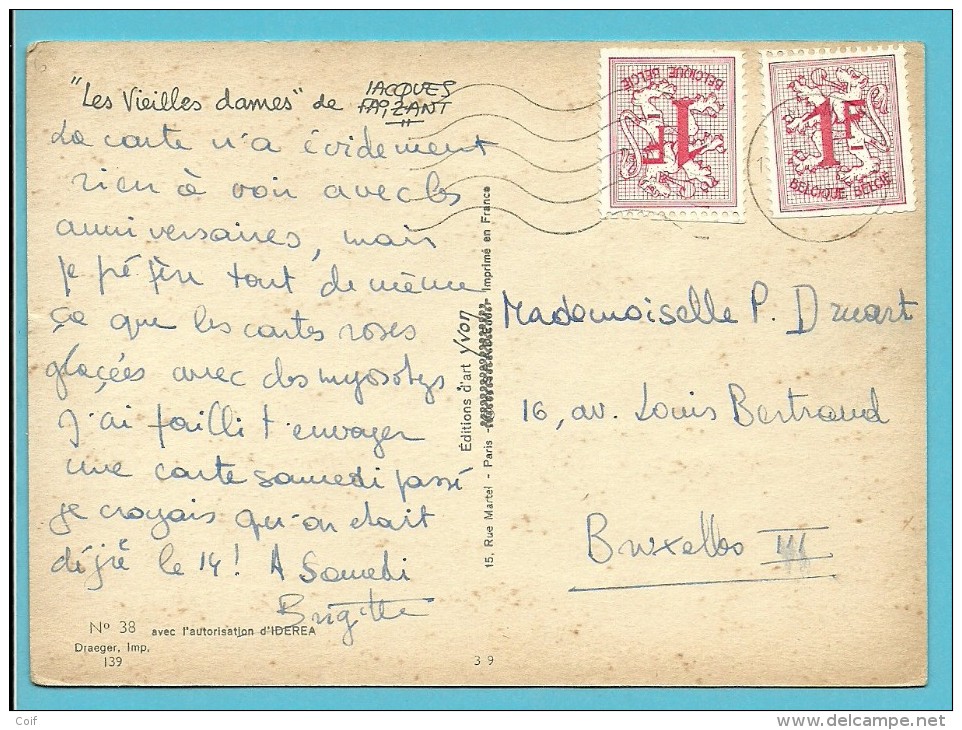 "Les Vieilles dames" de JACQUES FAIZANT
La carte n'a évidement
rien à voir avec les
anniversaires, mais
je préfère tout de même
ça que les cartes roses
glaçées avec des myosotys
J'ai failli t'envoyer
une carte samedi passé
je croyais qu'on était
déjà le 14! A Samedi
Brigitte
No 38 avec l'autorisation d'IDEREA
Draeger, Imp.
139
39
Éditions d'art Yvon
15, Rue Martel - Paris - Imprimé en France
BELGIQUE BELGIË
1F
1F
BELGIQUE BELGIË
Mademoiselle P. Druart
16, av. Louis Bertrand
Bruxelles III
Coif
www.delcampe.net